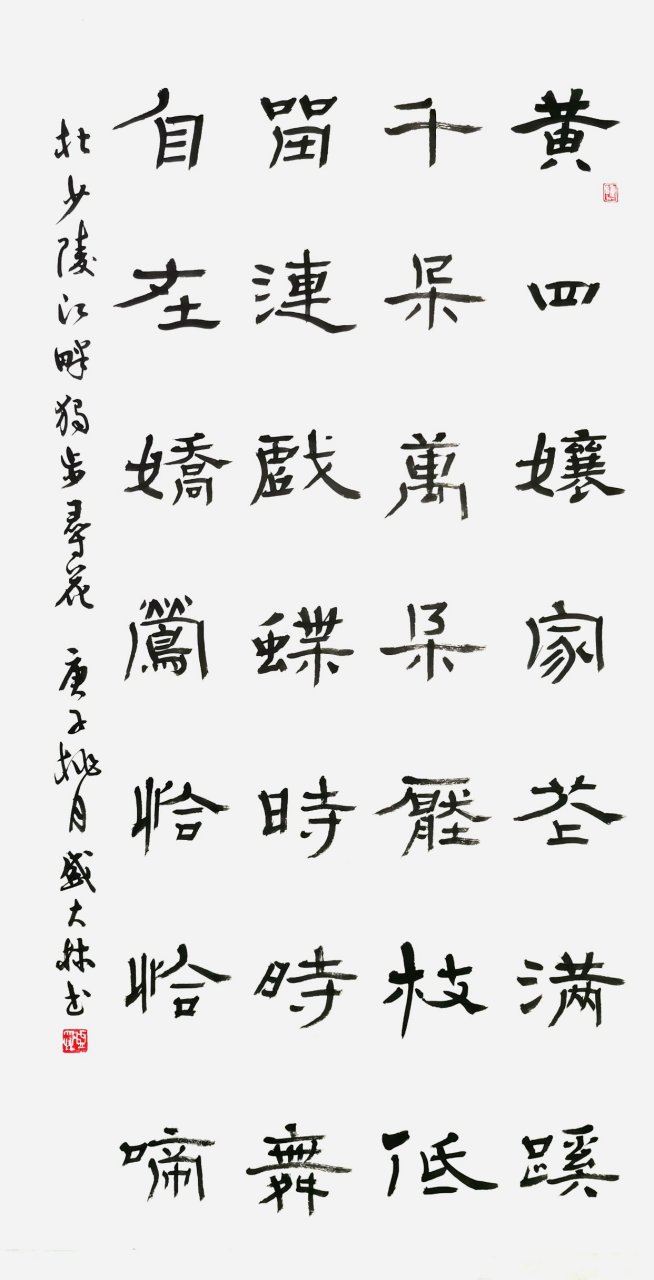 黄四孃家花满蹊
千朵萬朵壓枝低
留漣戲蝶時時舞
自在嬌鶯恰恰啼
杜少陵江畔獨步尋花 庚子桃月盛大林书